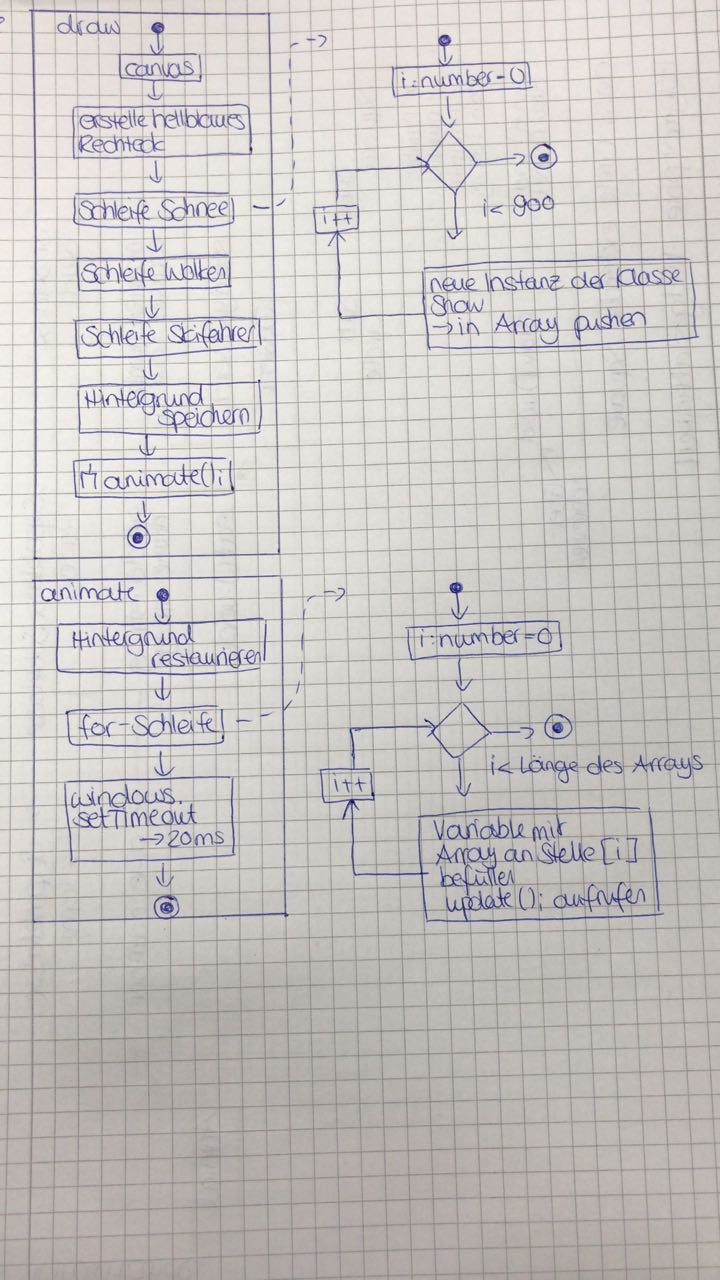 draw
canvas
erstelle hellblaues
Rechteck
Schleife Schnee
Schleife Wolken
Schleife Skifahrer
Hintergrund
speichern
animate();
i:number=0
i< 900
i++
neue Instanz der Klasse
Snow
→in Array pushen
animate
Hintergrund
restaurieren
for-Schleife
windows.
setTimeout
→20ms
i:number=0
i< Länge des Arrays
i++
Variable mit
Array an Stelle [i]
befüllen
update(); aufrufen